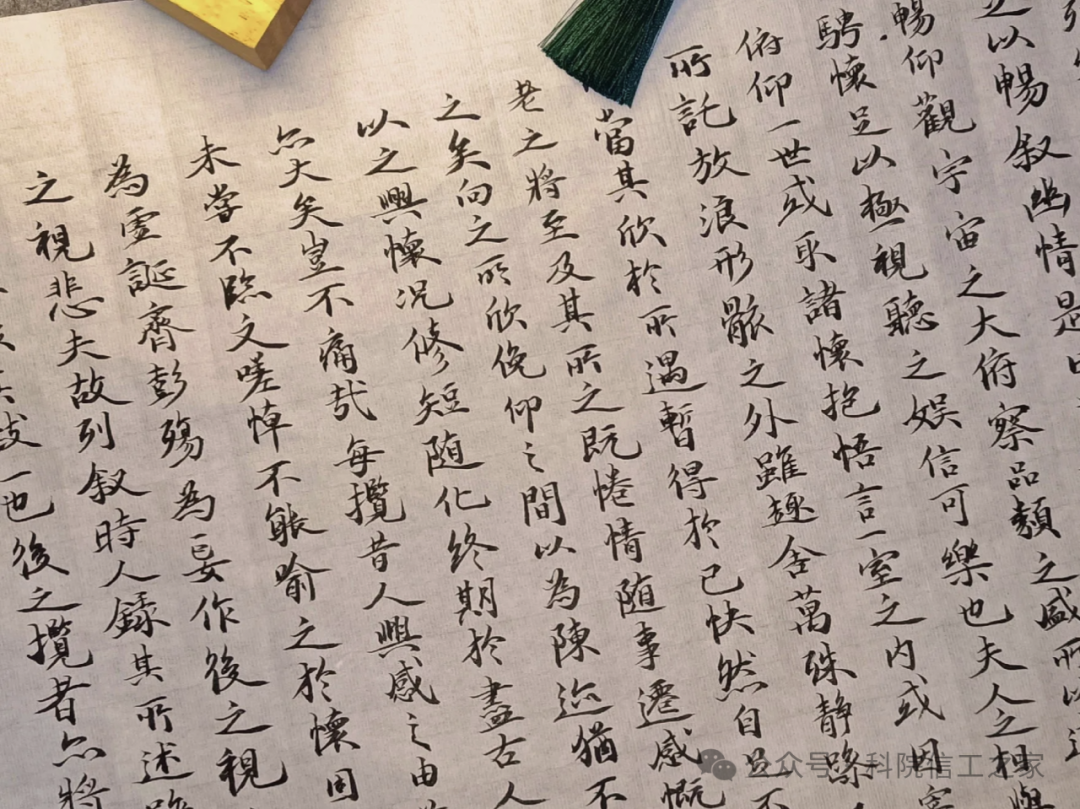 足以暢叙幽情是日
暢仰觀宇宙之大俯察品類之盛所以遊
騁懷足以極視聽之娱信可樂也夫人之相與
俯仰一世或取諸懷抱悟言一室之内或因寄
所託放浪形骸之外雖趣舍萬殊静躁
當其欣於所遇暫得於己快然自足不
老之將至及其所之既惓情随事遷感慨
之矣向之所欣俛仰之間以為陳迹猶不
以之興懷况修短随化終期於盡古人
亦大矣豈不痛哉每攬昔人興感之由
未嘗不臨文嗟悼不能喻之於懷固
為虚誕齊彭殤為妄作後之視
之視悲夫故列叙時人録其所述雖
致一也後之攬者亦將
公众号 科院信工之家